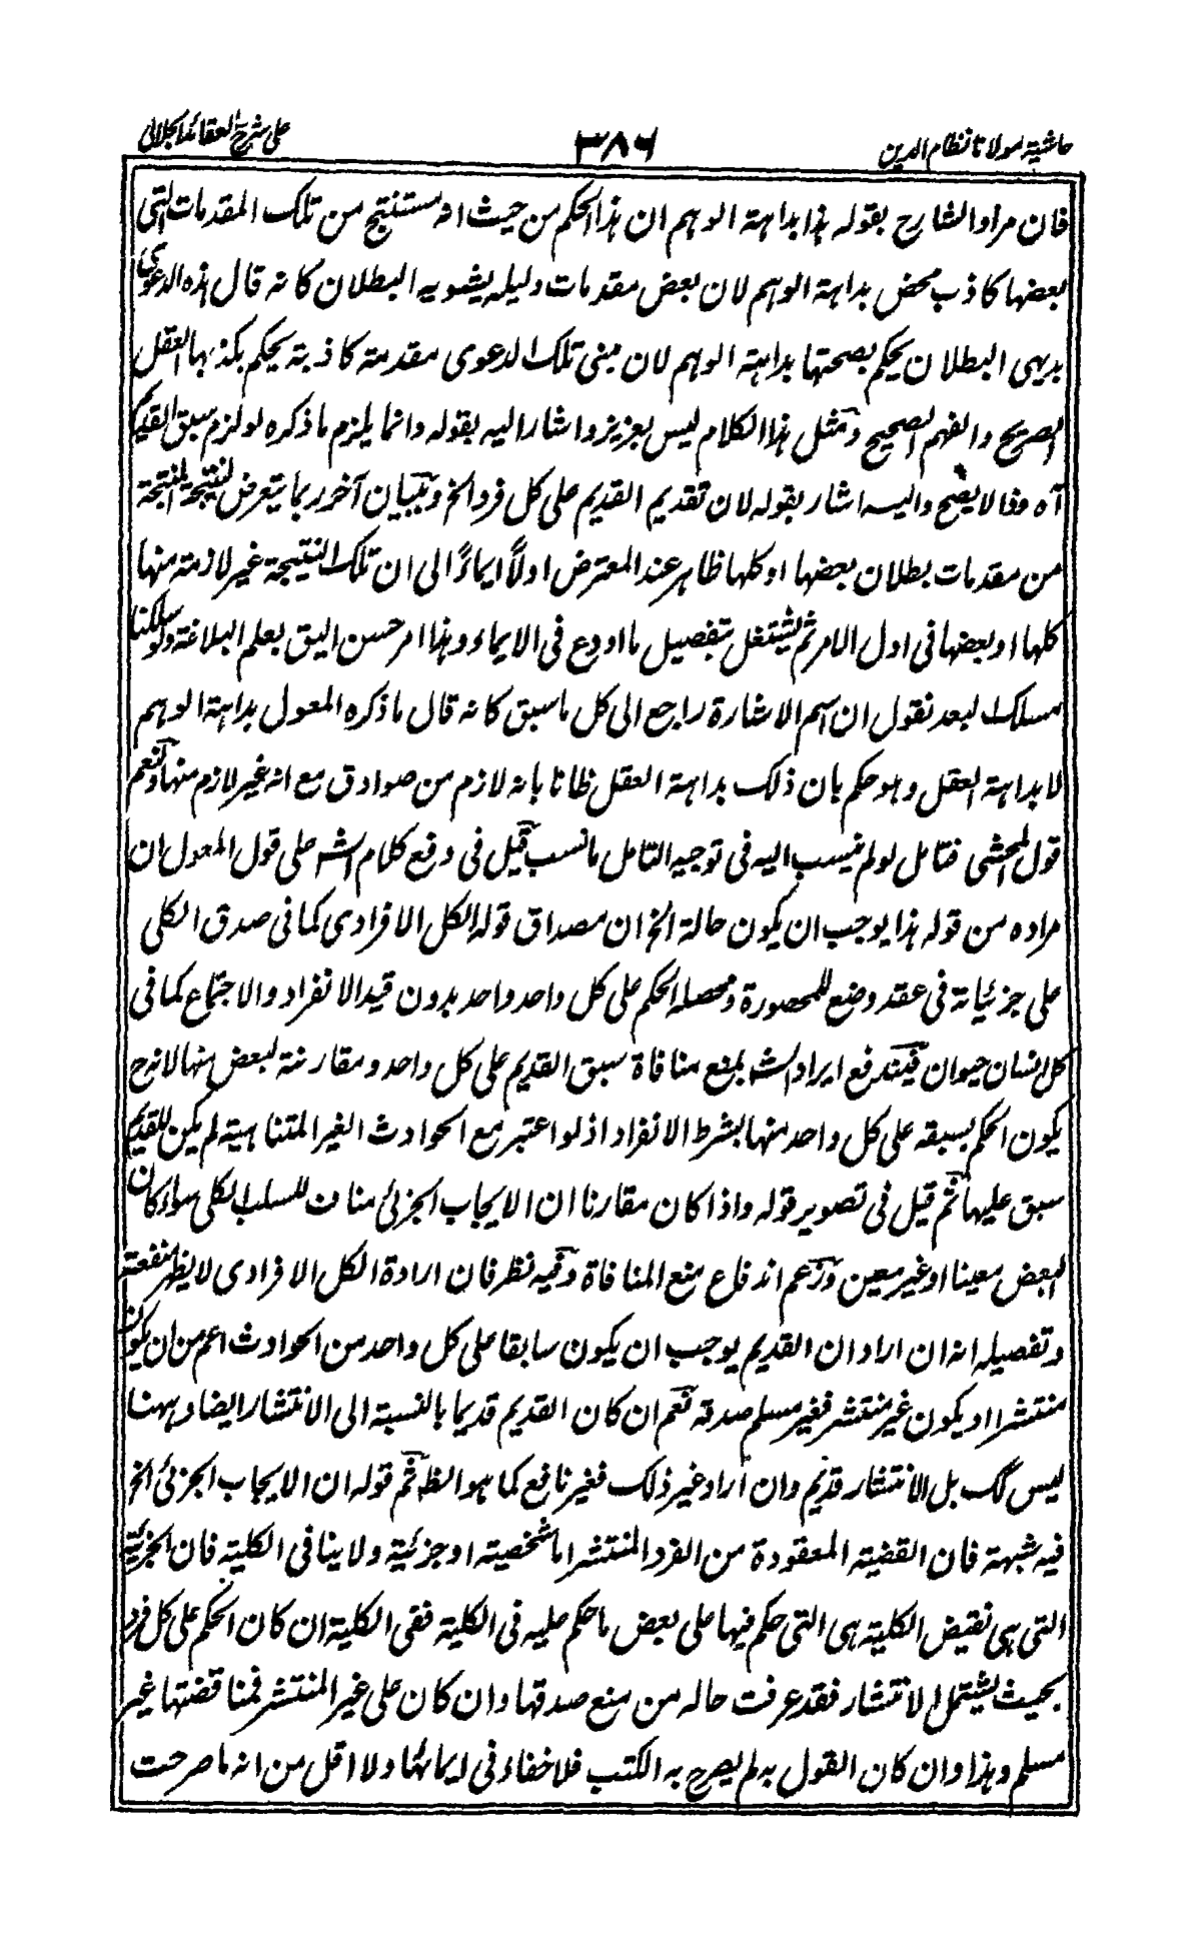 حاشية لمولانا نظام الدين
٣٨٦
على شرح العقائد الجلالى
فان مراد الشارح بقوله هذا بداهة الوهم ان هذا الحكم من حيث انه مستنتج من تلك المقدمات التى
بعضها كاذب محض بداهة الوهم لان بعض مقدمات دليله يشوبه البطلان كانه قال هذه الدعوى
بديهى البطلان يحكم بصحتها بداهة الوهم لان مبنى تلك الدعوى مقدمة كاذبة يحكم بكذبها العقل
الصريح والفهم الصحيح ومثل هذا الكلام ليس بعزيز واشار اليه بقوله وانما يلزم ما ذكره لو لزم سبق القديم
آه وفا لا يصح واليه اشار بقوله لان تقديم القديم على كل فرد الخ وببيان آخر ربما يتعرض لنتيجة المنتجة
من مقدمات بطلان بعضها او كلها ظاهر عند المعترض اولاً ايماءً الى ان تلك النتيجة غير لازمة منها
كلها او بعضها فى اول الامر ثم يشتغل بتفصيل ما اودع فى الايماء وهذا امر حسن اليق بعلم البلاغة ولو سلكنا
مسلك لبعد نقول ان اسم الاشارة راجع الى كل ما سبق كانه قال ما ذكره المعول بداهة الوهم
لا بداهة العقل وهو حكم بان ذلك بداهة العقل ظانا بانه لازم من صوادق مع انه غير لازم منها ونعم
قول المحشى فتامل لو لم ينسب اليه فى توجيه التامل ما نسب قيل فى دفع كلام الشـ على قول المعول ان
مراده من قوله هذا يوجب ان يكون حالة الخ ان مصداق قوله الكل الافرادى كما فى صدق الكلى
على جزئياته فى عقد وضع للمحصورة ومحصله الحكم على كل واحد واحد بدون قيد الانفراد والاجتماع كما فى
كل انسان حيوان فيندفع ايراد الشـ بمنع منافاة سبق القديم على كل واحد ومقارنة لبعض منها لانه ح
يكون الحكم بسبقه على كل واحد منها بشرط الانفراد اذ لو اعتبر مع الحوادث الغير المتناهية لم يكن للقديم
سبق عليها ثم قيل فى تصوير قوله واذا كان مقارنا ان الايجاب الجزئى مناف للسلب الكلى سواء كان
البعض معينا او غير معين وزعم اندفاع منع المنافاة وفيه نظر فان ارادة الكل الافرادى لا يظهر منفعته
وتفصيله انه ان اراد ان القديم يوجب ان يكون سابقا على كل واحد من الحوادث اعم من ان يكون
منتشرا او يكون غير منتشر فغير مسلم صدقه نعم ان كان القديم قديما بالنسبة الى الانتشار ايضا وههنا
ليس كك بل الانتشار قديم وان اراد غير ذلك فغير نافع كما هو الظ ثم قوله ان الايجاب الجزئى الخ
فيه شبهة فان القضية المعقودة من الفرد المنتشر اما شخصية او جزئية ولا ينافى الكلية فان الجزئية
التى هى نقيض الكلية هى التى حكم فيها على بعض ما حكم عليه فى الكلية ففى الكلية ان كان الحكم على كل فرد
بحيث يشتمل الانتشار فقد عرفت حاله من منع صدقها وان كان على غير المنتشر فمناقضتها غير
مسلم وهذا وان كان القول به لم يصرح به الكتب فلا خفاء فى ايمائها ولا اقل من انه ما صرحت